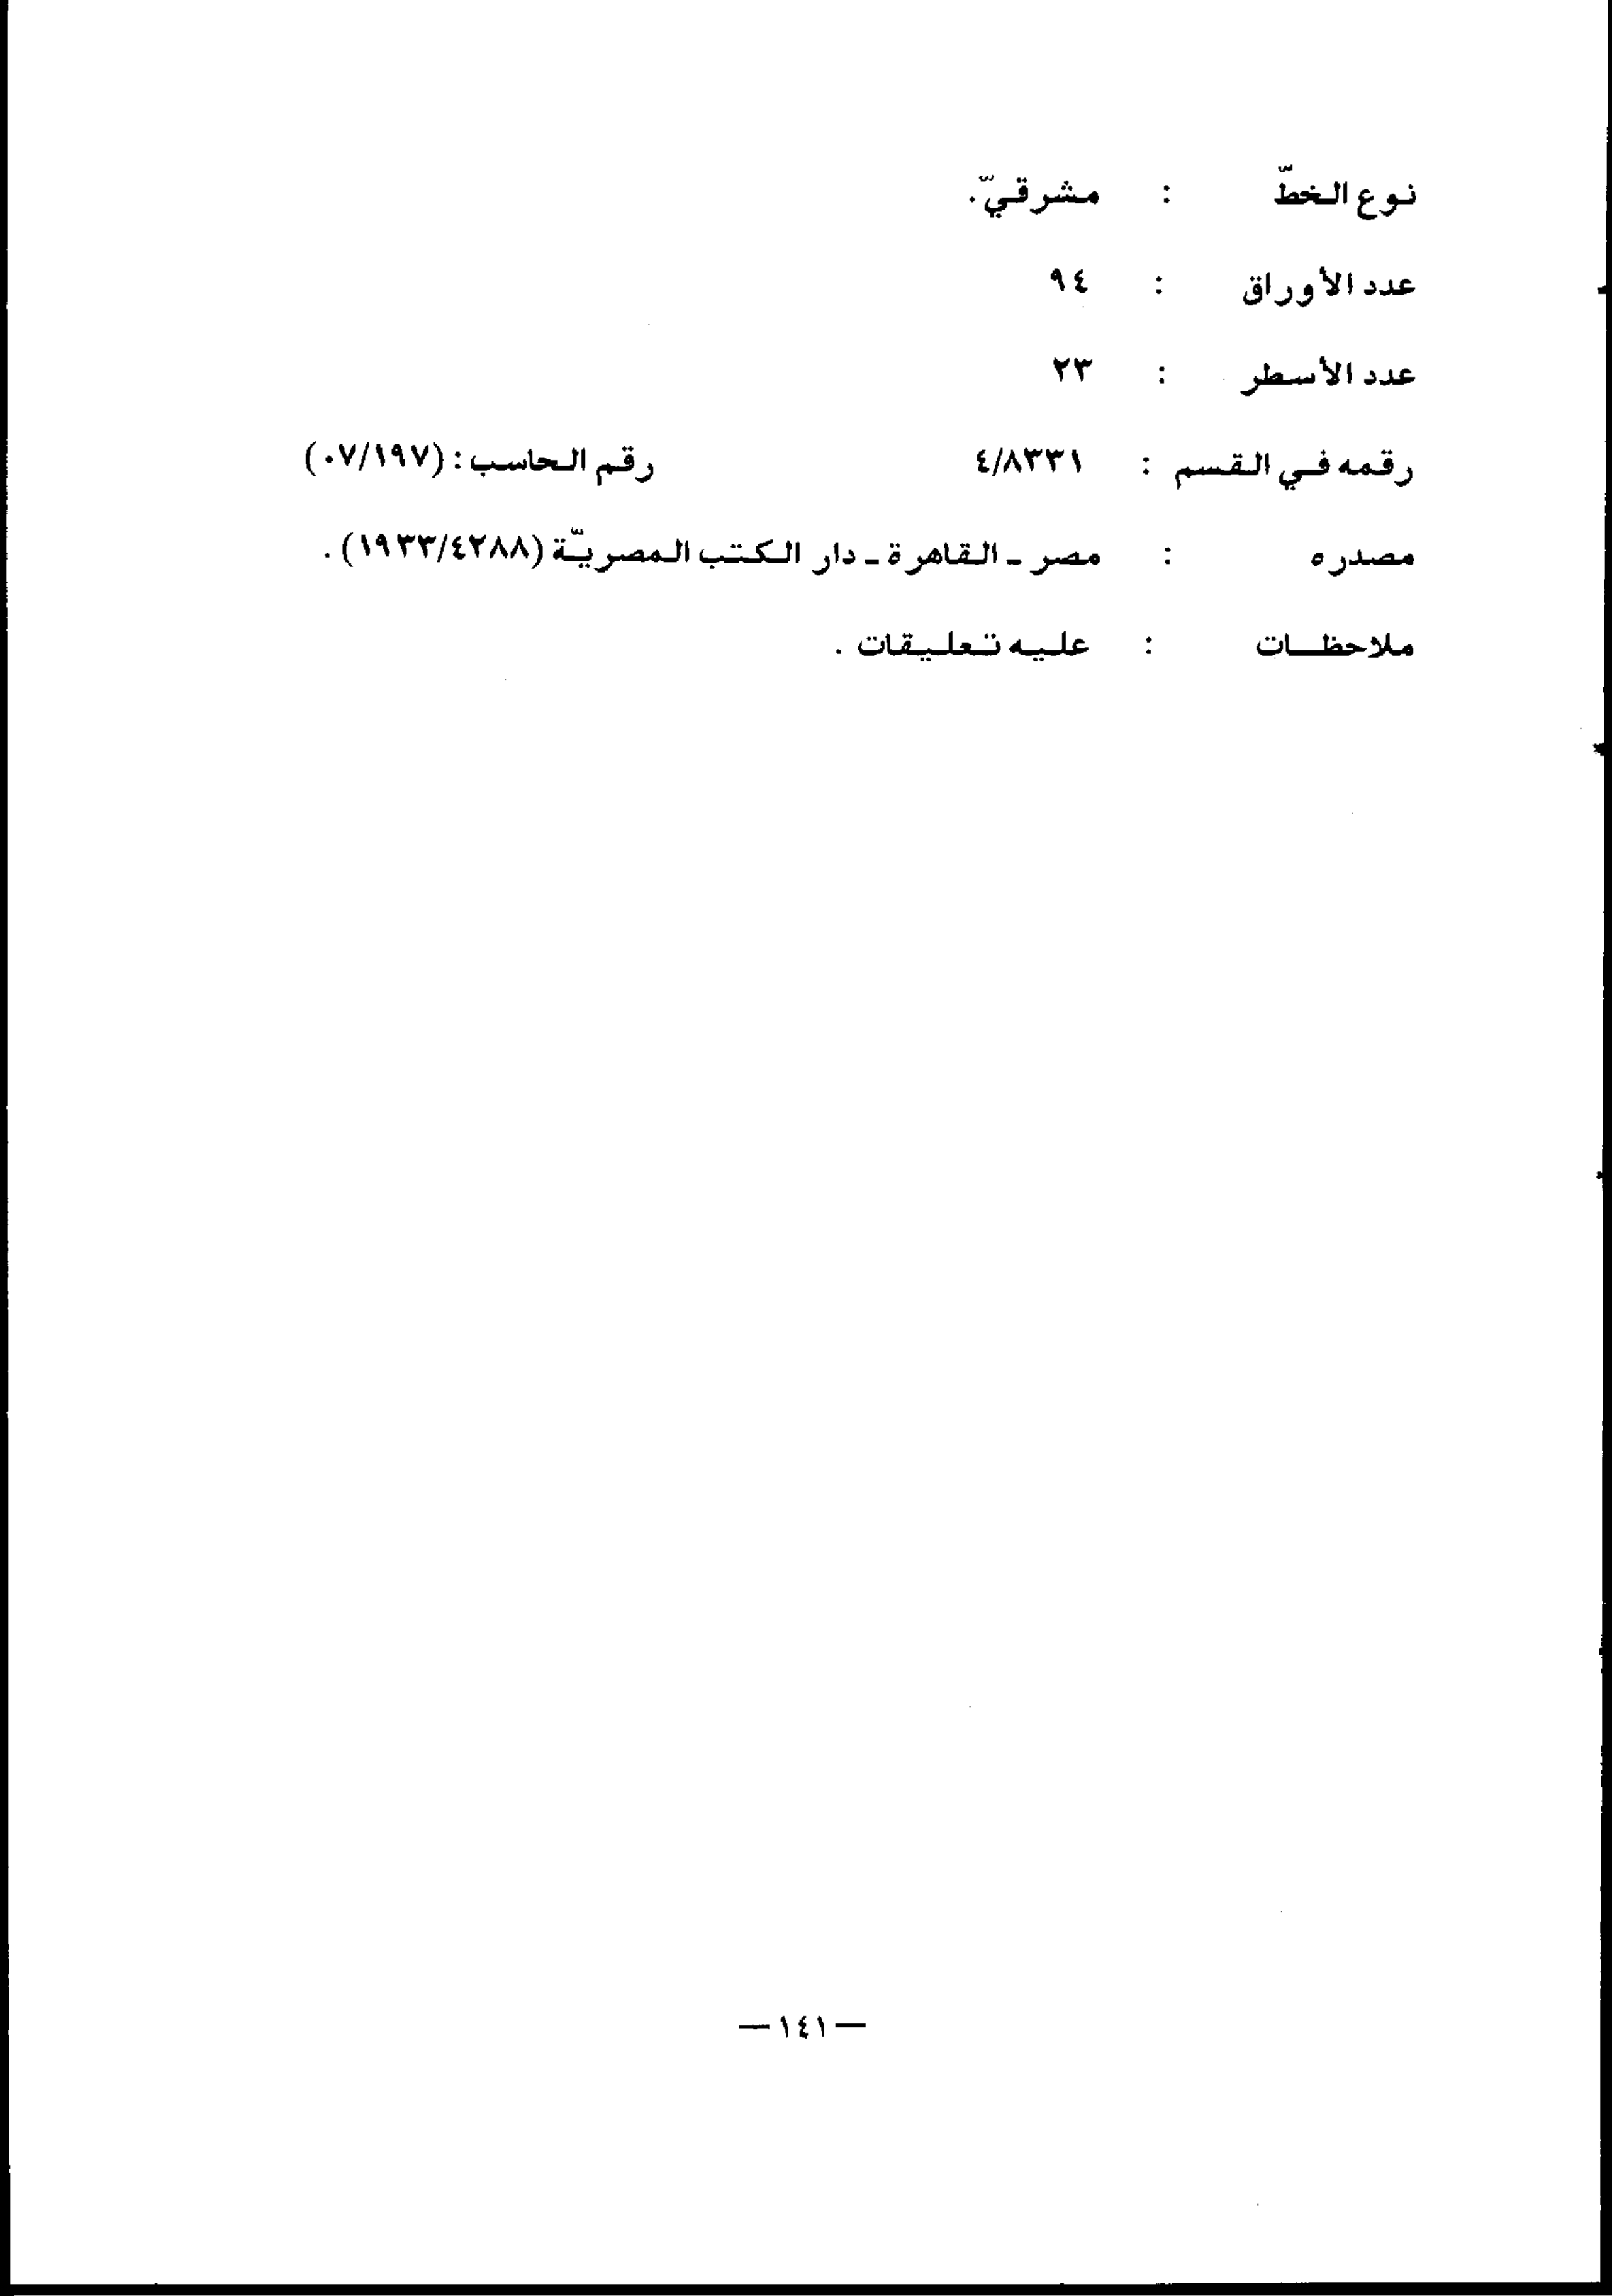 نوع الخطّ : مشرقيّ.
عدد الأوراق : ٩٤
عدد الأسطر : ٢٣
رقمه في القسم : ٤/٨٣٣١ رقم الحاسب : (٠٧/١٩٧)
مصدره : مصر ـ القاهرة ـ دار الكتب المصريّة (١٩٣٣/٤٢٨٨) .
ملاحظـات : عليه تعليقات .
— ١٤١ —